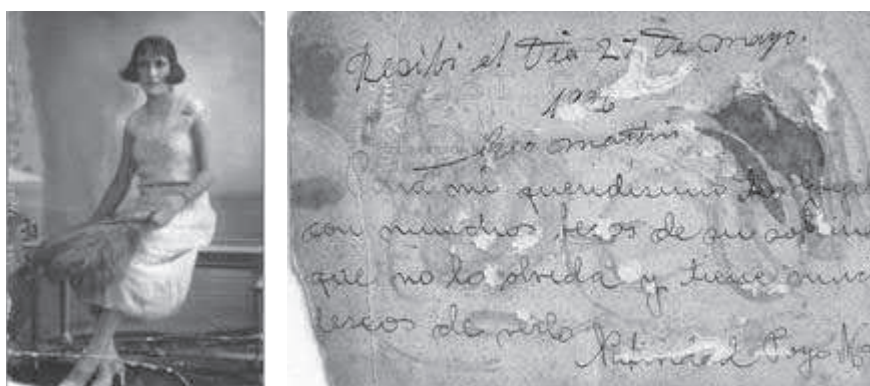 Recibi el Dia 27 de mayo.
1936
martin
mi queridisimo
con munchos besos de su sobrina
que no lo olvida y tiene munc
deseos de verlo
Natividad Poyo